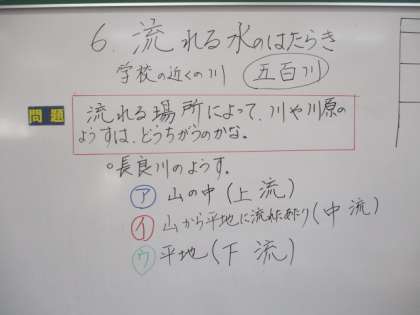 6. 流れる水のはたらき
学校の近くの川 五百川
問題
流れる場所によって、川や川原の
ようすは、どうちがうのかな。
○長良川のようす。
ア 山の中(上流)
イ 山から平地に流れたあたり(中流)
ウ 平地(下流)